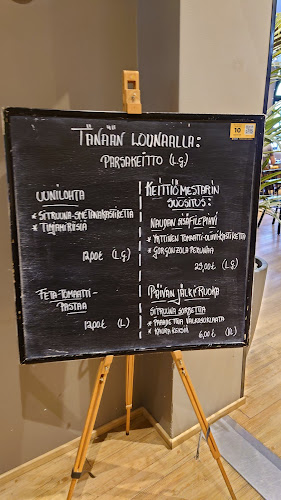 TÄNÄÄN LOUNAALLA:
PARSAKEITTO (L,G)
10
UUNILOHTA
* SITRUUNA-SMETANAKASTIKETTA
* TILLIÄ RIISIÄ
12,00€ (L,G)
FETA-TOMAATTI-
PASTAA
12,00€ (L)
KEITTIÖMESTARIN
SUOSITUS:
NAUDAN SISÄFILEPIHVI
* YRTTINEN TOMAATTI-OLIIVIKASTIKETTA
* GORGONZOLA PERUNAA
25,00€ (L,G)
PÄIVÄN JÄLKIRUOKA
SITRUUNA SORBETTA
* PAAHDETTUA VALKOSUKLAATA
* KAURA KEKSIÄ
6,00€